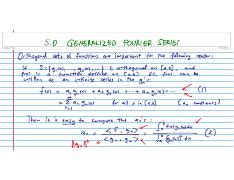 5.D GENERALIZED FOURIER SERIES
Orthogonal sets of functions are important for the following reason:
If S = {g₁(x), ..., gₙ(x), ...} is orthogonal on [a,b], and
f(x) is a function defined on [a,b]. If f(x) can be
written as an infinite series in the gᵢ's:
f(x) = a₁g₁(x) + a₂g₂(x) + ... + aₙgₙ(x) + ... (1)
= Σ aₙgₙ(x) for all x in [a,b] (aₙ constants)
Then it is easy to compute the aₙ's:
aₙ = <f, gₙ> / <gₙ, gₙ> = ∫ f(x)gₙ(x)dx / ∫ (gₙ(x))² dx (2)
‖gₙ‖²